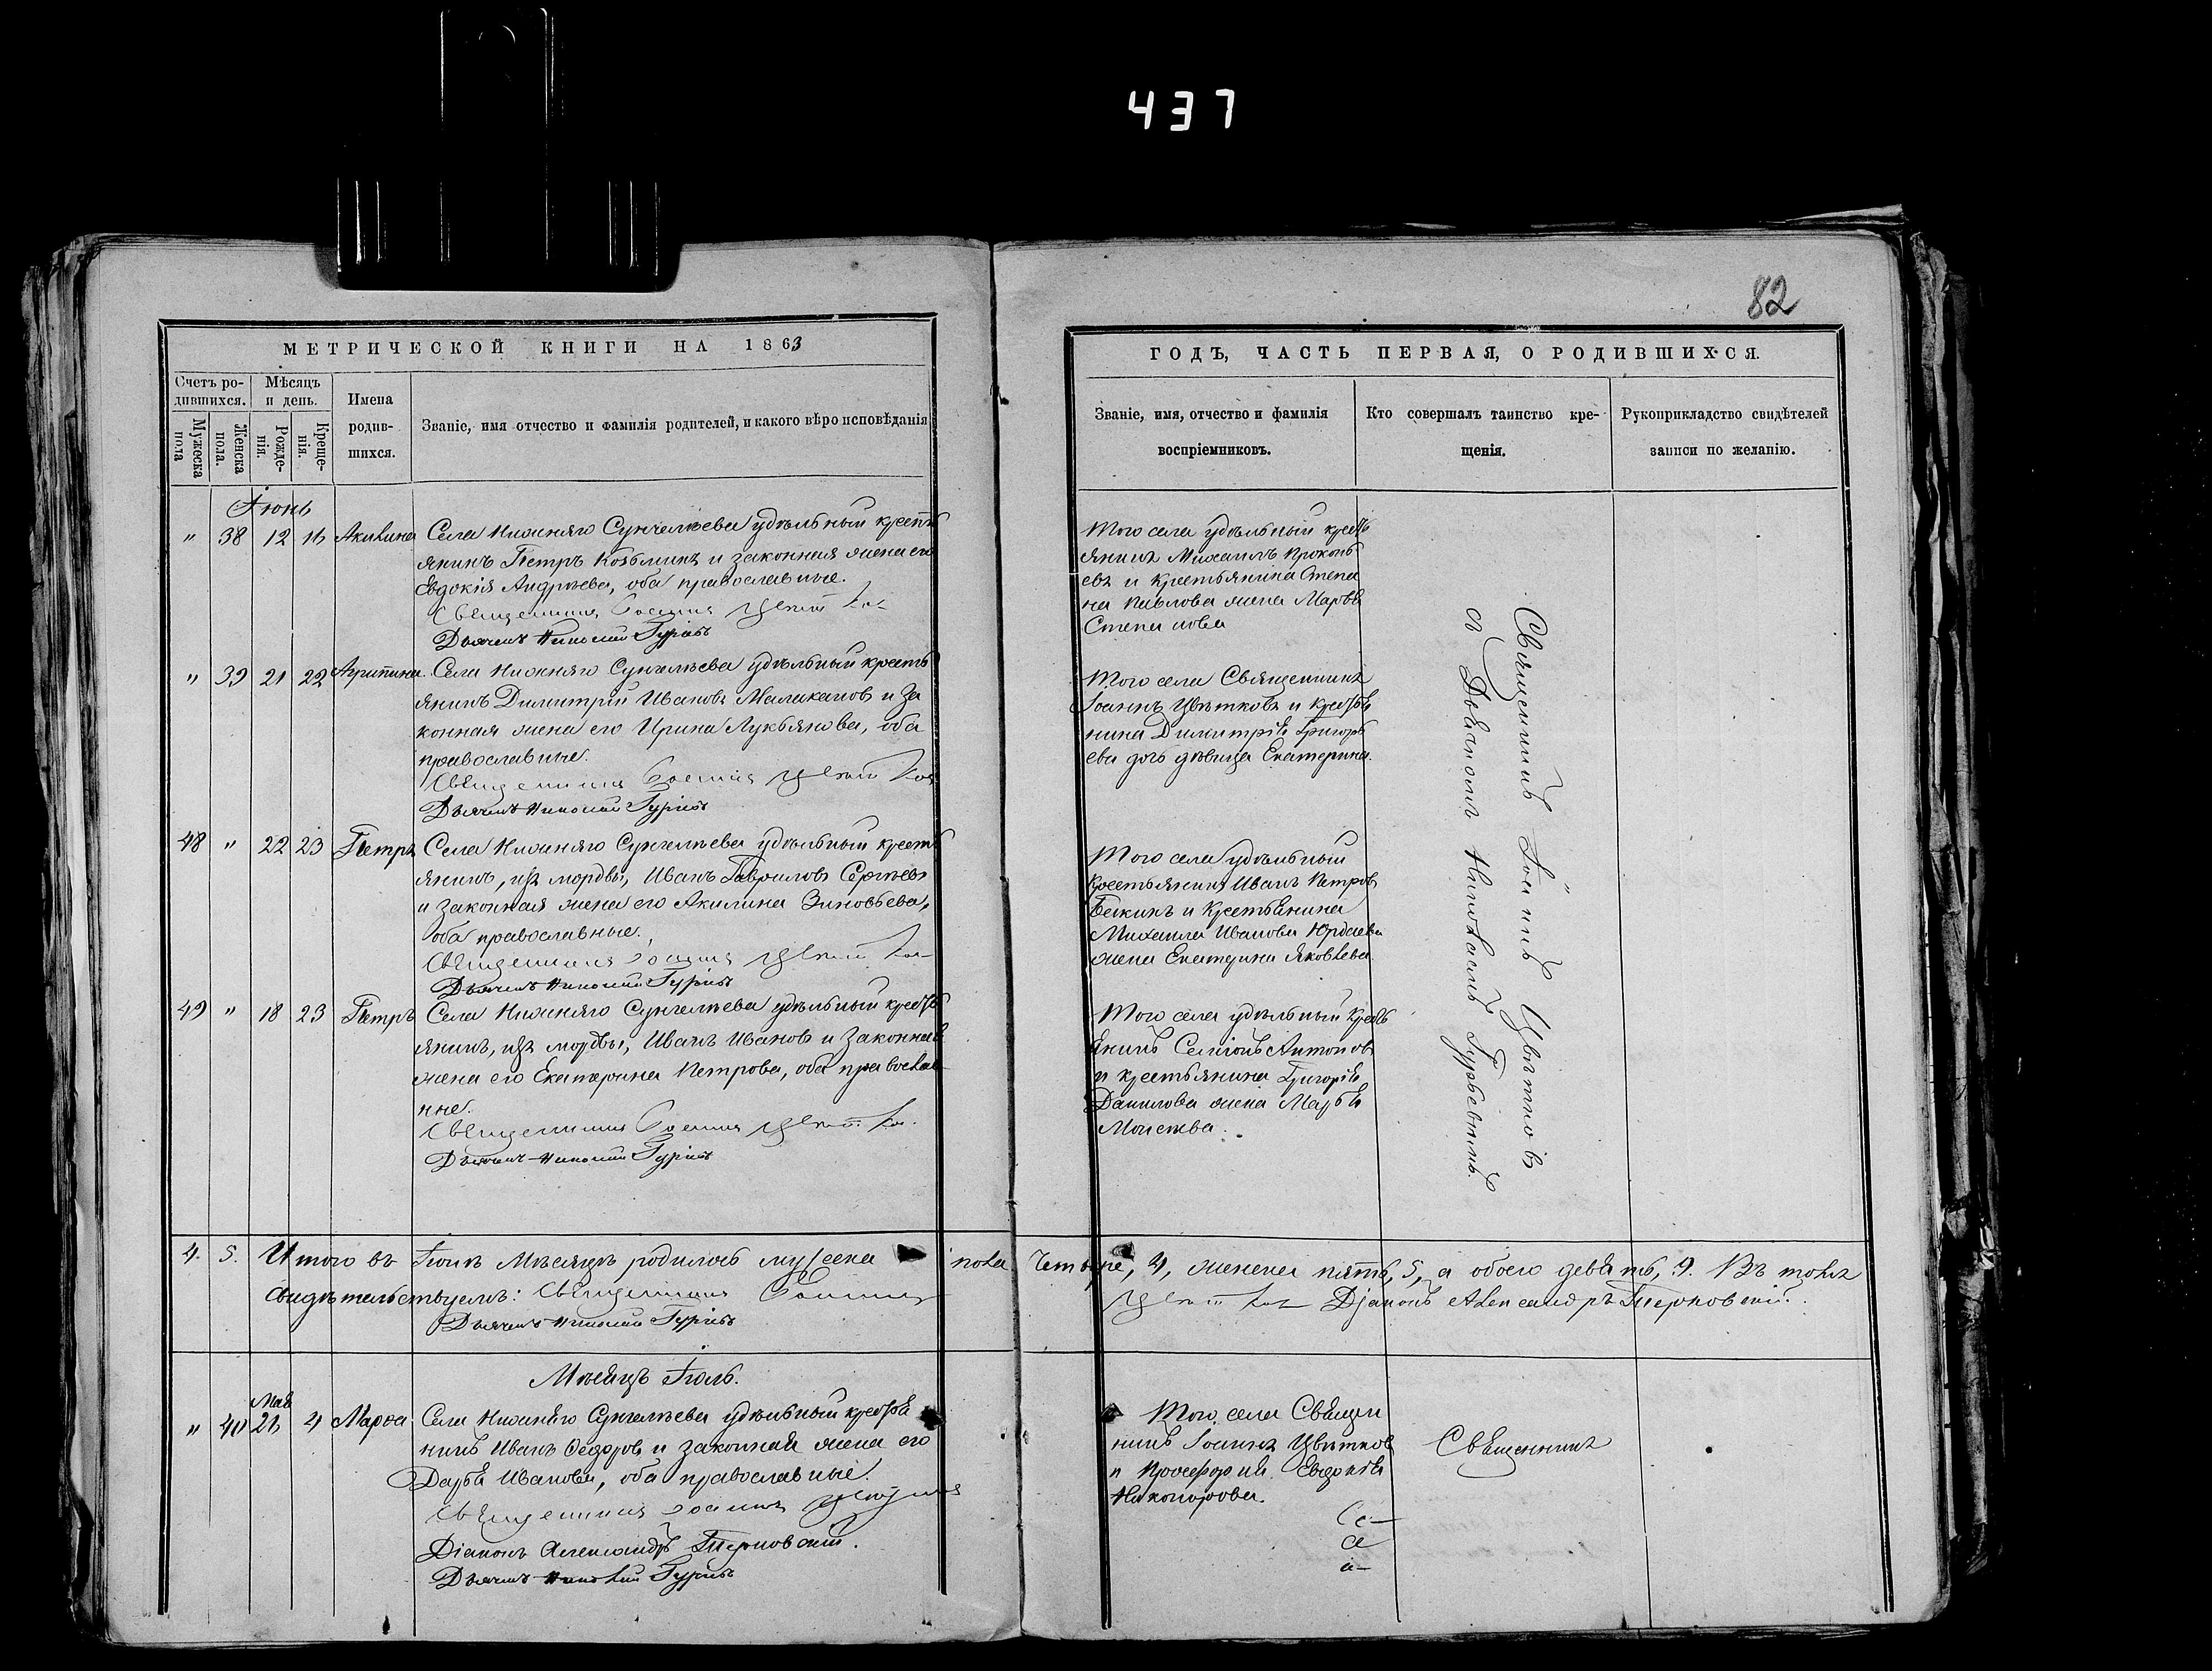 437
82
МЕТРИЧЕСКОЙ КНИГИ НА 1863
ГОДЪ, ЧАСТЬ ПЕРВАЯ, О РОДИВШИХСЯ.
Счетъ ро-
дившихся.
Мѣсяцъ
и день.
Мужеска
пола
Женска
пола.
Рожде-
нія.
Креще-
нія.
Имена
родив-
шихся.
Званіе, имя отчество и фамилія родителей, и какого вѣроисповѣданія
Званіе, имя, отчество и фамилія
воспріемниковъ.
Кто совершалъ таинство кре-
щенія.
Рукоприкладство свидѣтелей
записи по желанію.
Іюнь
" 38 12 Акилина Села Нижняго Сунгелѣева удѣльный кресть
янинъ Петръ Козьминъ и законная жена его
Евдокія Андрѣева, оба православные.
Священникъ Іоаннъ Цвѣтков
Дьячекъ Николай Гурьевъ
Того села удѣльный кресть
янинъ Михаилъ Прокопь
евъ и крестьянина Степа
на Павлова жена Марѳа
Степанова
" 39 21 22 Агрипина Села Нижняго Сунгелѣева удѣльный кресть
янинъ Димитрій Ивановъ Малакановъ и за
конная жена его Ирина Лукьянова, оба
православные.
Священникъ Іоаннъ Цвѣтков
Дьячекъ Николай Гурьевъ
Того села Священникъ
Іоаннъ Цвѣтковъ и крестья
нина Димитрія Григорь
ева дочь дѣвица Екатерина.
48 " 22 23 Петръ Села Нижняго Сунгелѣева удѣльный кресть
янинъ, изъ мордвы, Иванъ Гавриловъ Сергѣевъ
и законная жена его Акилина Зиновьева,
оба православные.
Священникъ Іоаннъ Цвѣтков
Дьячекъ Николай Гурьевъ
Того села удѣльный
крестьянинъ Иванъ Петровъ
и крестьянина
Михаила Иванова Юрдаева
жена Екатерина Яковлева.
49 " 18 23 Петръ Села Нижняго Сунгелѣева удѣльный кресть
янинъ, изъ мордвы, Иванъ Ивановъ и законная
жена его Екатерина Петрова, оба православ
ные.
Священникъ Іоаннъ Цвѣтков
Дьячекъ Николай Гурьевъ
Того села удѣльный кресть
янинъ Семіонъ Антоновъ
и крестьянина Григорія
Данилова жена Марья
Моисеева.
Священникъ Іоаннъ Цвѣтковъ
съ Дьячкомъ Николаемъ Гурьевымъ.
4. 5. Итого въ Іюнѣ мѣсяцѣ родилось мужеска пола четыре, 4, женска пять, 5, а обоего девять, 9. Въ томъ
свидѣтельствуемъ: Священникъ Іоаннъ Цвѣтков Діаконъ Александръ Терновскій.
Дьячекъ Николай Гурьевъ
Мѣсяцъ Іюль.
Мая
" 40 4 Марѳа Села Нижняго Сунгелѣева удѣльный крестья
нинъ Иванъ Ѳедоровъ и законная жена его
Дарья Иванова, оба православные.
Священникъ Іоаннъ
Діаконъ Александръ Терновскій.
Дьячекъ Николай Гурьевъ
Того села Священ
никъ Іоаннъ Цвѣтков
и просфорня Евдокія
Никонорова.
Священникъ